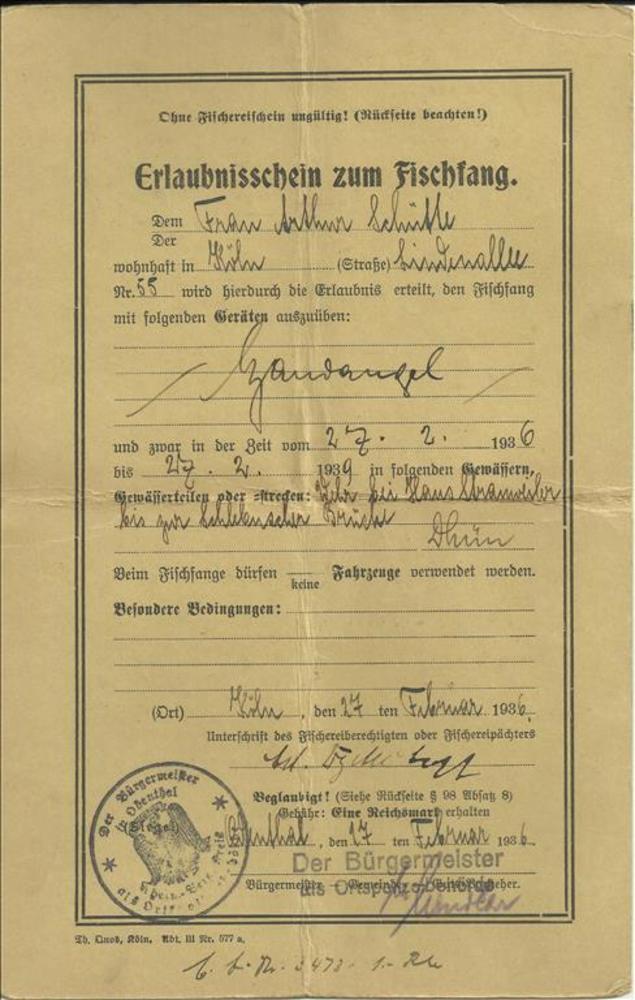 Ohne Fischereischein ungültig! (Rückseite beachten!)
Erlaubnisschein zum Fischfang.
Dem Frau Arthur Schütte
Der
wohnhaft in Köln (Straße) Lindenallee
Nr. 55 wird hierdurch die Erlaubnis erteilt, den Fischfang
mit folgenden Geräten auszuüben:
Handangel
und zwar in der Zeit vom 27. 2. 1936
bis 27. 2. 1939 in folgenden Gewässern,
Gewässerteilen oder =strecken: bei Haus Strauweiler
bis zur Brücke
Dhün
Beim Fischfange dürfen — Fahrzeuge verwendet werden.
keine
Besondere Bedingungen:
(Ort) Köln, den 27 ten Februar 1936.
Unterschrift des Fischereiberechtigten oder Fischereipächters
Beglaubigt! (Siehe Rückseite § 98 Absatz 8)
Gebühr: Eine Reichsmark erhalten
Odenthal, den 27 ten Februar 1936.
Der Bürgermeister
als Ortspolizeibehörde
Bürgermeister — Gemeinde
Der Bürgermeister
in Odenthal
(Siegel)
als
Th. Quos, Köln. Abt. III Nr. 577 a.